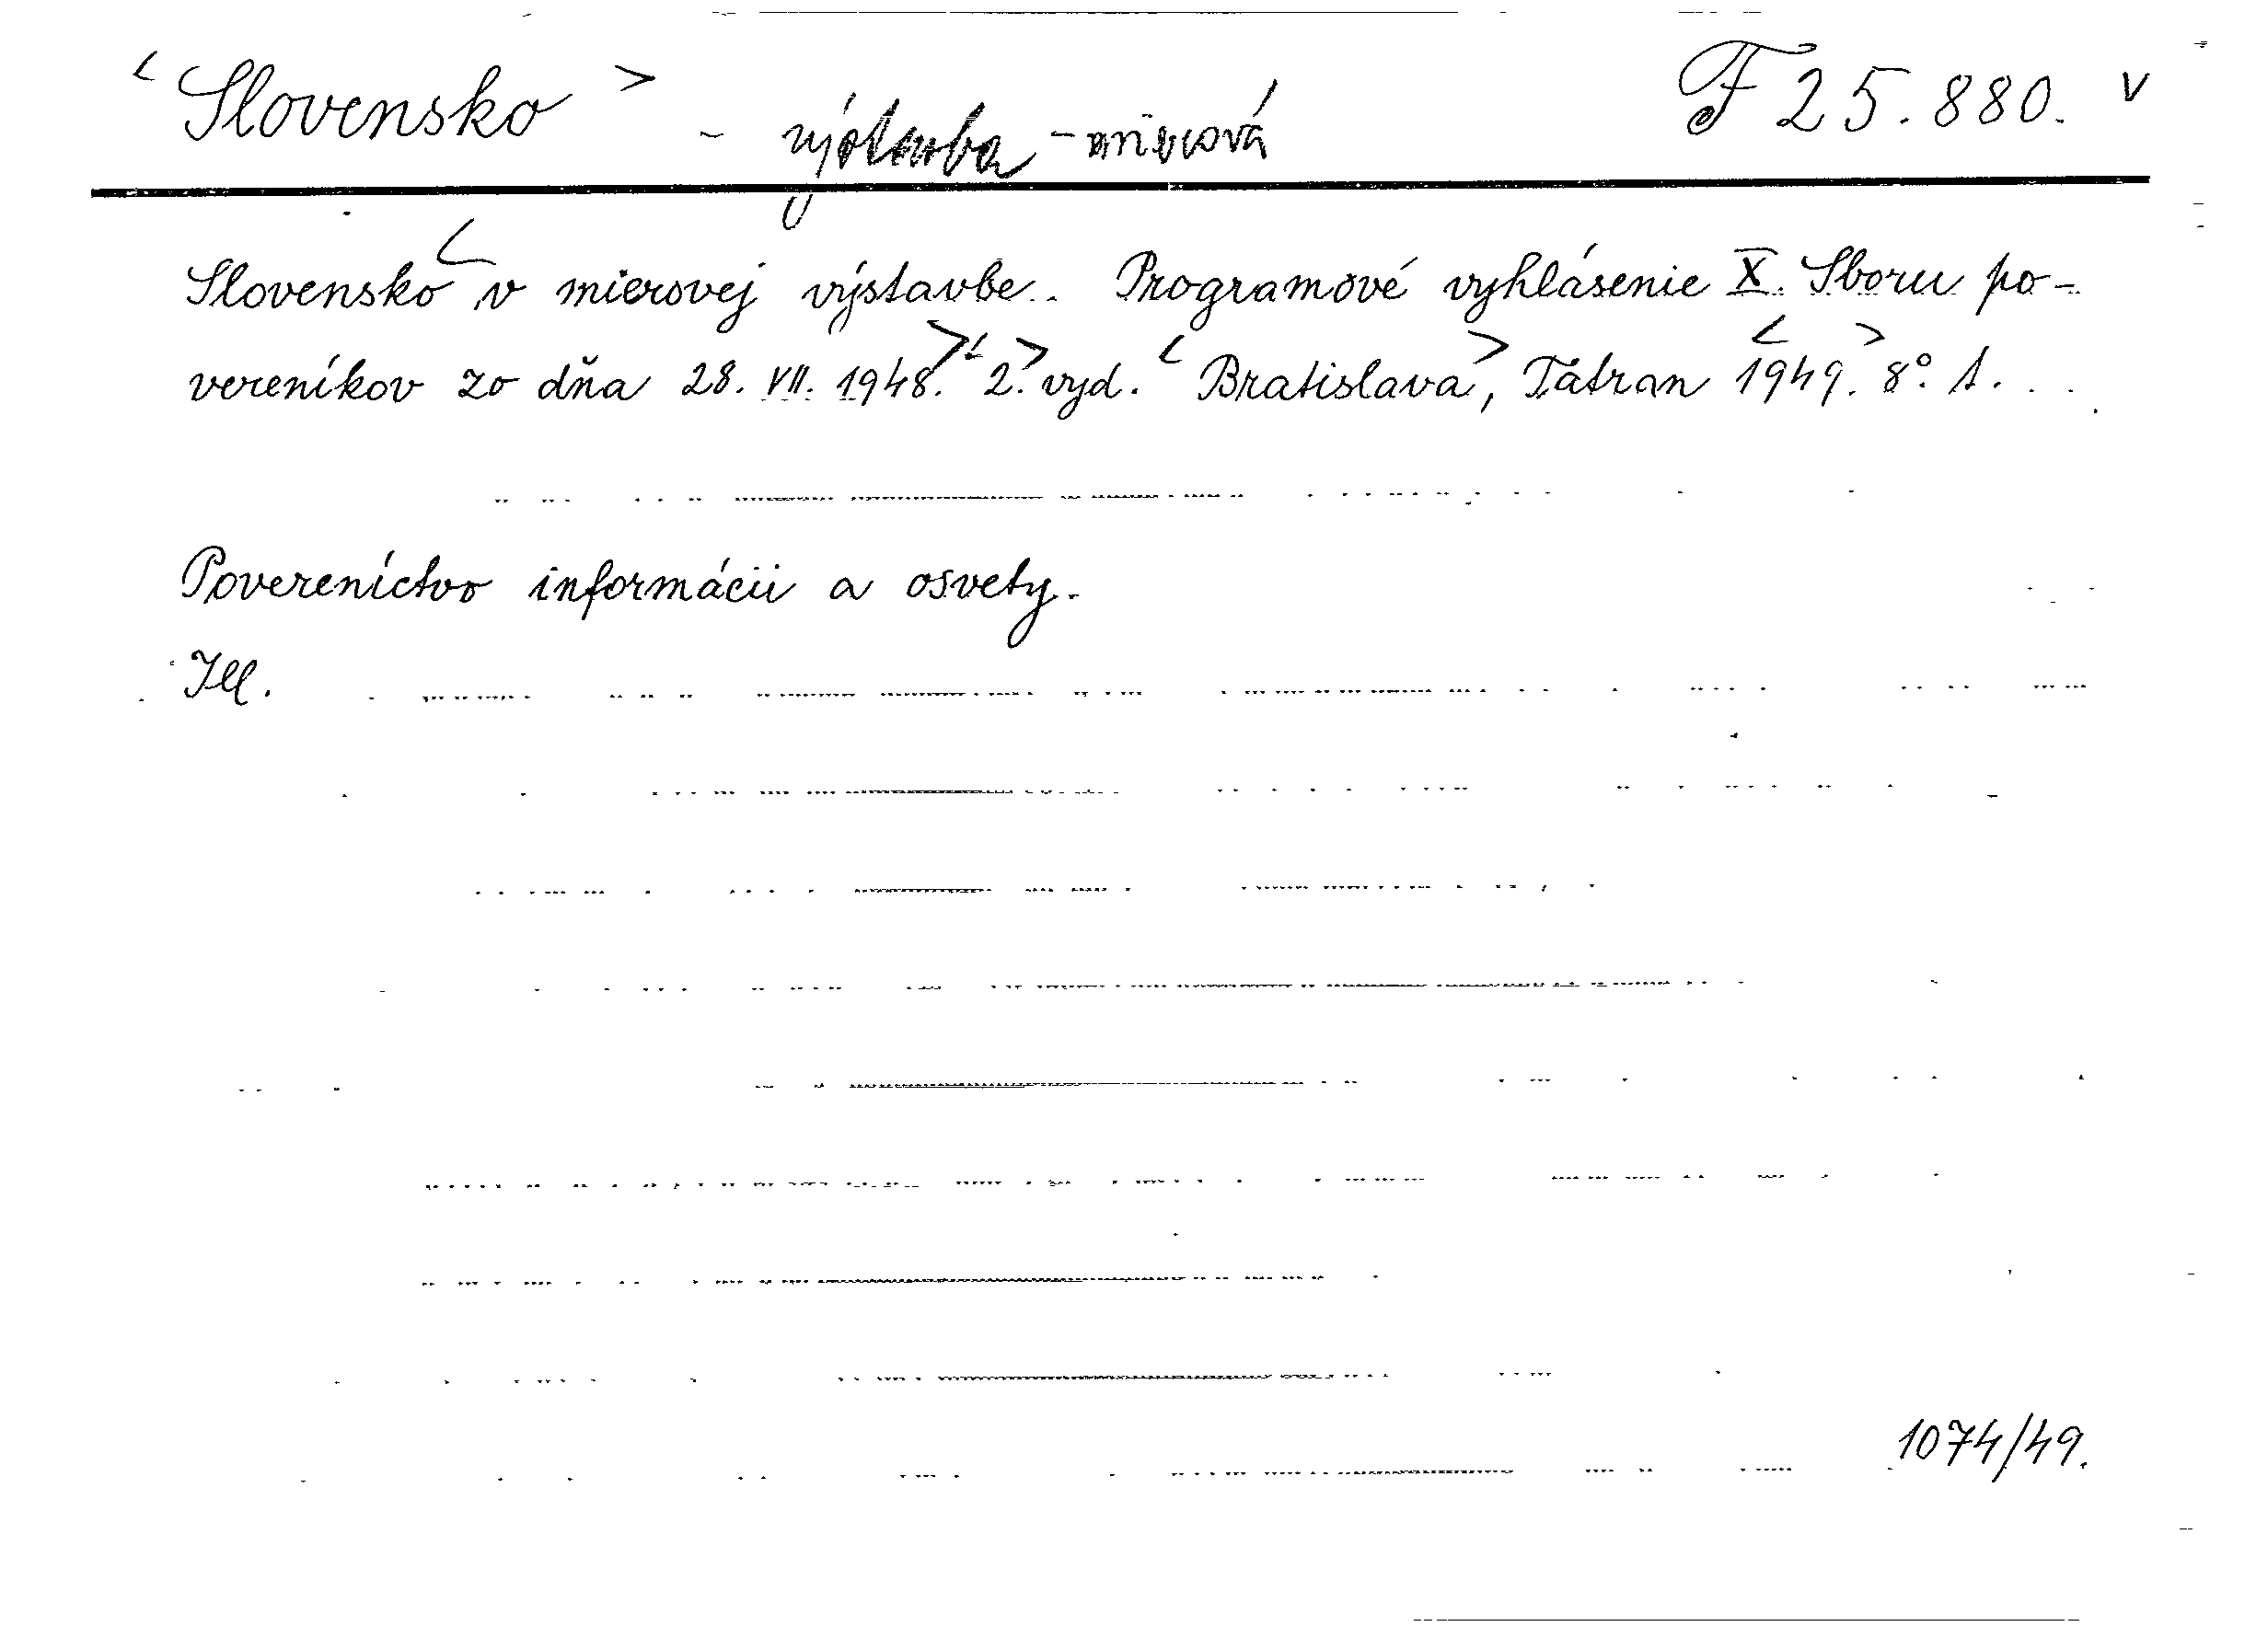 < Slovensko > - výstavba - mierová F 25.880. v
Slovensko < v mierovej výstavbe. Programové vyhlásenie X. Sboru po-
vereníkov zo dňa 28. VII. 1948. > < 2. > vyd. < Bratislava >, Tatran < 1949. > 8°. 1. . .
Povereníctvo informácií a osvety.
Ill.
1074/49.